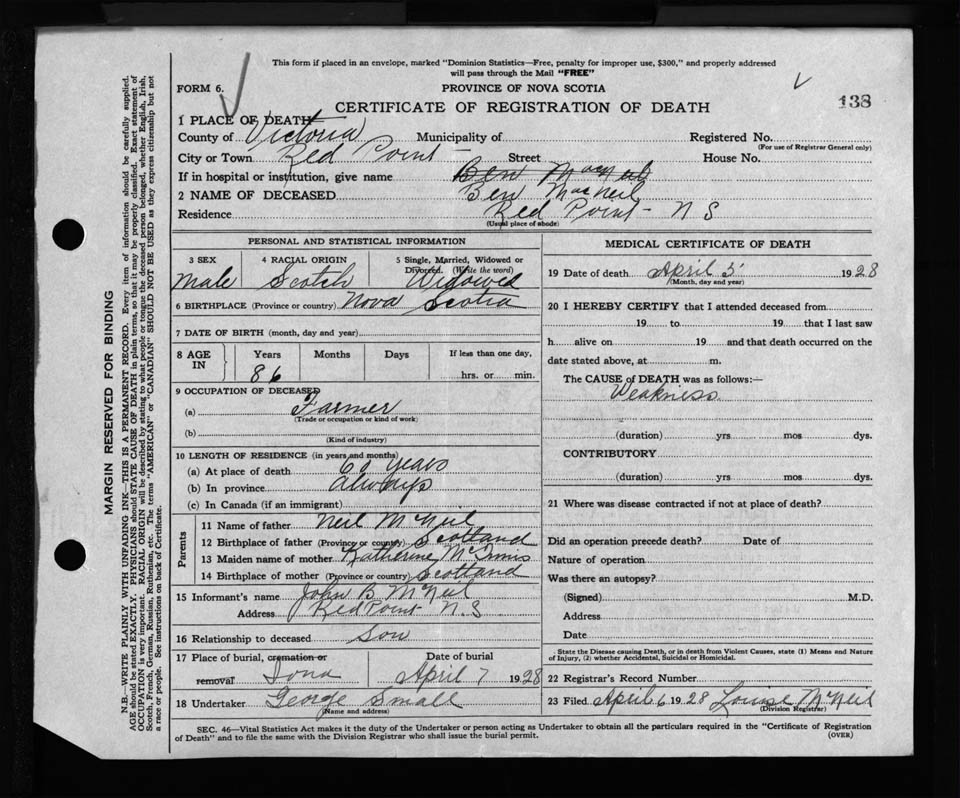 This form if placed in an envelope, marked "Dominion Statistics—Free, penalty for improper use, $300," and properly addressed
will pass through the Mail "FREE"
FORM 6.
PROVINCE OF NOVA SCOTIA
138
CERTIFICATE OF REGISTRATION OF DEATH
1 PLACE OF DEATH
County of Victoria Municipality of Registered No.
(For use of Registrar General only)
City or Town Red Point Street House No.
If in hospital or institution, give name Ben MacNeil
2 NAME OF DECEASED Ben MacNeil
Residence Red Point - N S
(Usual place of abode)
PERSONAL AND STATISTICAL INFORMATION
3 SEX 4 RACIAL ORIGIN 5 Single, Married, Widowed or
Divorced. (Write the word)
Male Scotch Widowed
6 BIRTHPLACE (Province or country) Nova Scotia
7 DATE OF BIRTH (month, day and year)
8 AGE IN Years Months Days If less than one day,
86 hrs. or min.
9 OCCUPATION OF DECEASED
(a) Farmer
(Trade or occupation or kind of work)
(b)
(Kind of industry)
10 LENGTH OF RESIDENCE (in years and months)
(a) At place of death 60 years
(b) In province always
(c) In Canada (if an immigrant)
Parents
11 Name of father Neil McNeil
12 Birthplace of father (Province or country) Scotland
13 Maiden name of mother Katherine McInnis
14 Birthplace of mother (Province or country) Scotland
15 Informant's name John B McNeil
Address Red Point N.S
16 Relationship to deceased Son
17 Place of burial, cremation or Date of burial
removal Iona April 7 1928
18 Undertaker George Small
(Name and address)
MEDICAL CERTIFICATE OF DEATH
19 Date of death April 5 1928
(Month, day and year)
20 I HEREBY CERTIFY that I attended deceased from
19 to 19 that I last saw
h alive on 19 and that death occurred on the
date stated above, at m.
The CAUSE of DEATH was as follows:—
Weakness
(duration) yrs mos dys.
CONTRIBUTORY
(duration) yrs mos dys.
21 Where was disease contracted if not at place of death?
Did an operation precede death? Date of
Nature of operation
Was there an autopsy?
(Signed) M.D.
Address
Date
. State the Disease causing Death, or in death from Violent Causes, state (1) Means and Nature
of Injury, (2) whether Accidental, Suicidal or Homicidal.
22 Registrar's Record Number
23 Filed April 6 1928 Louise McNeil
(Division Registrar)
SEC. 46—Vital Statistics Act makes it the duty of the Undertaker or person acting as Undertaker to obtain all the particulars required in the "Certificate of Registration
of Death" and to file the same with the Division Registrar who shall issue the burial permit.
(OVER)
MARGIN RESERVED FOR BINDING
N.B.—WRITE PLAINLY WITH UNFADING INK—THIS IS A PERMANENT RECORD. Every item of information should be carefully supplied.
AGE should be stated EXACTLY. PHYSICIANS should STATE CAUSE OF DEATH in plain terms, so that it may be properly classified. Exact statement of
OCCUPATION is very important. RACIAL ORIGIN will be described by stating to what people or tongue the deceased person belonged, whether English, Irish,
Scotch, French, German, Russian, Ruthenian, etc. The terms "AMERICAN" or "CANADIAN" SHOULD NOT BE USED as they express citizenship but not
a race or people. See instructions on back of Certificate.